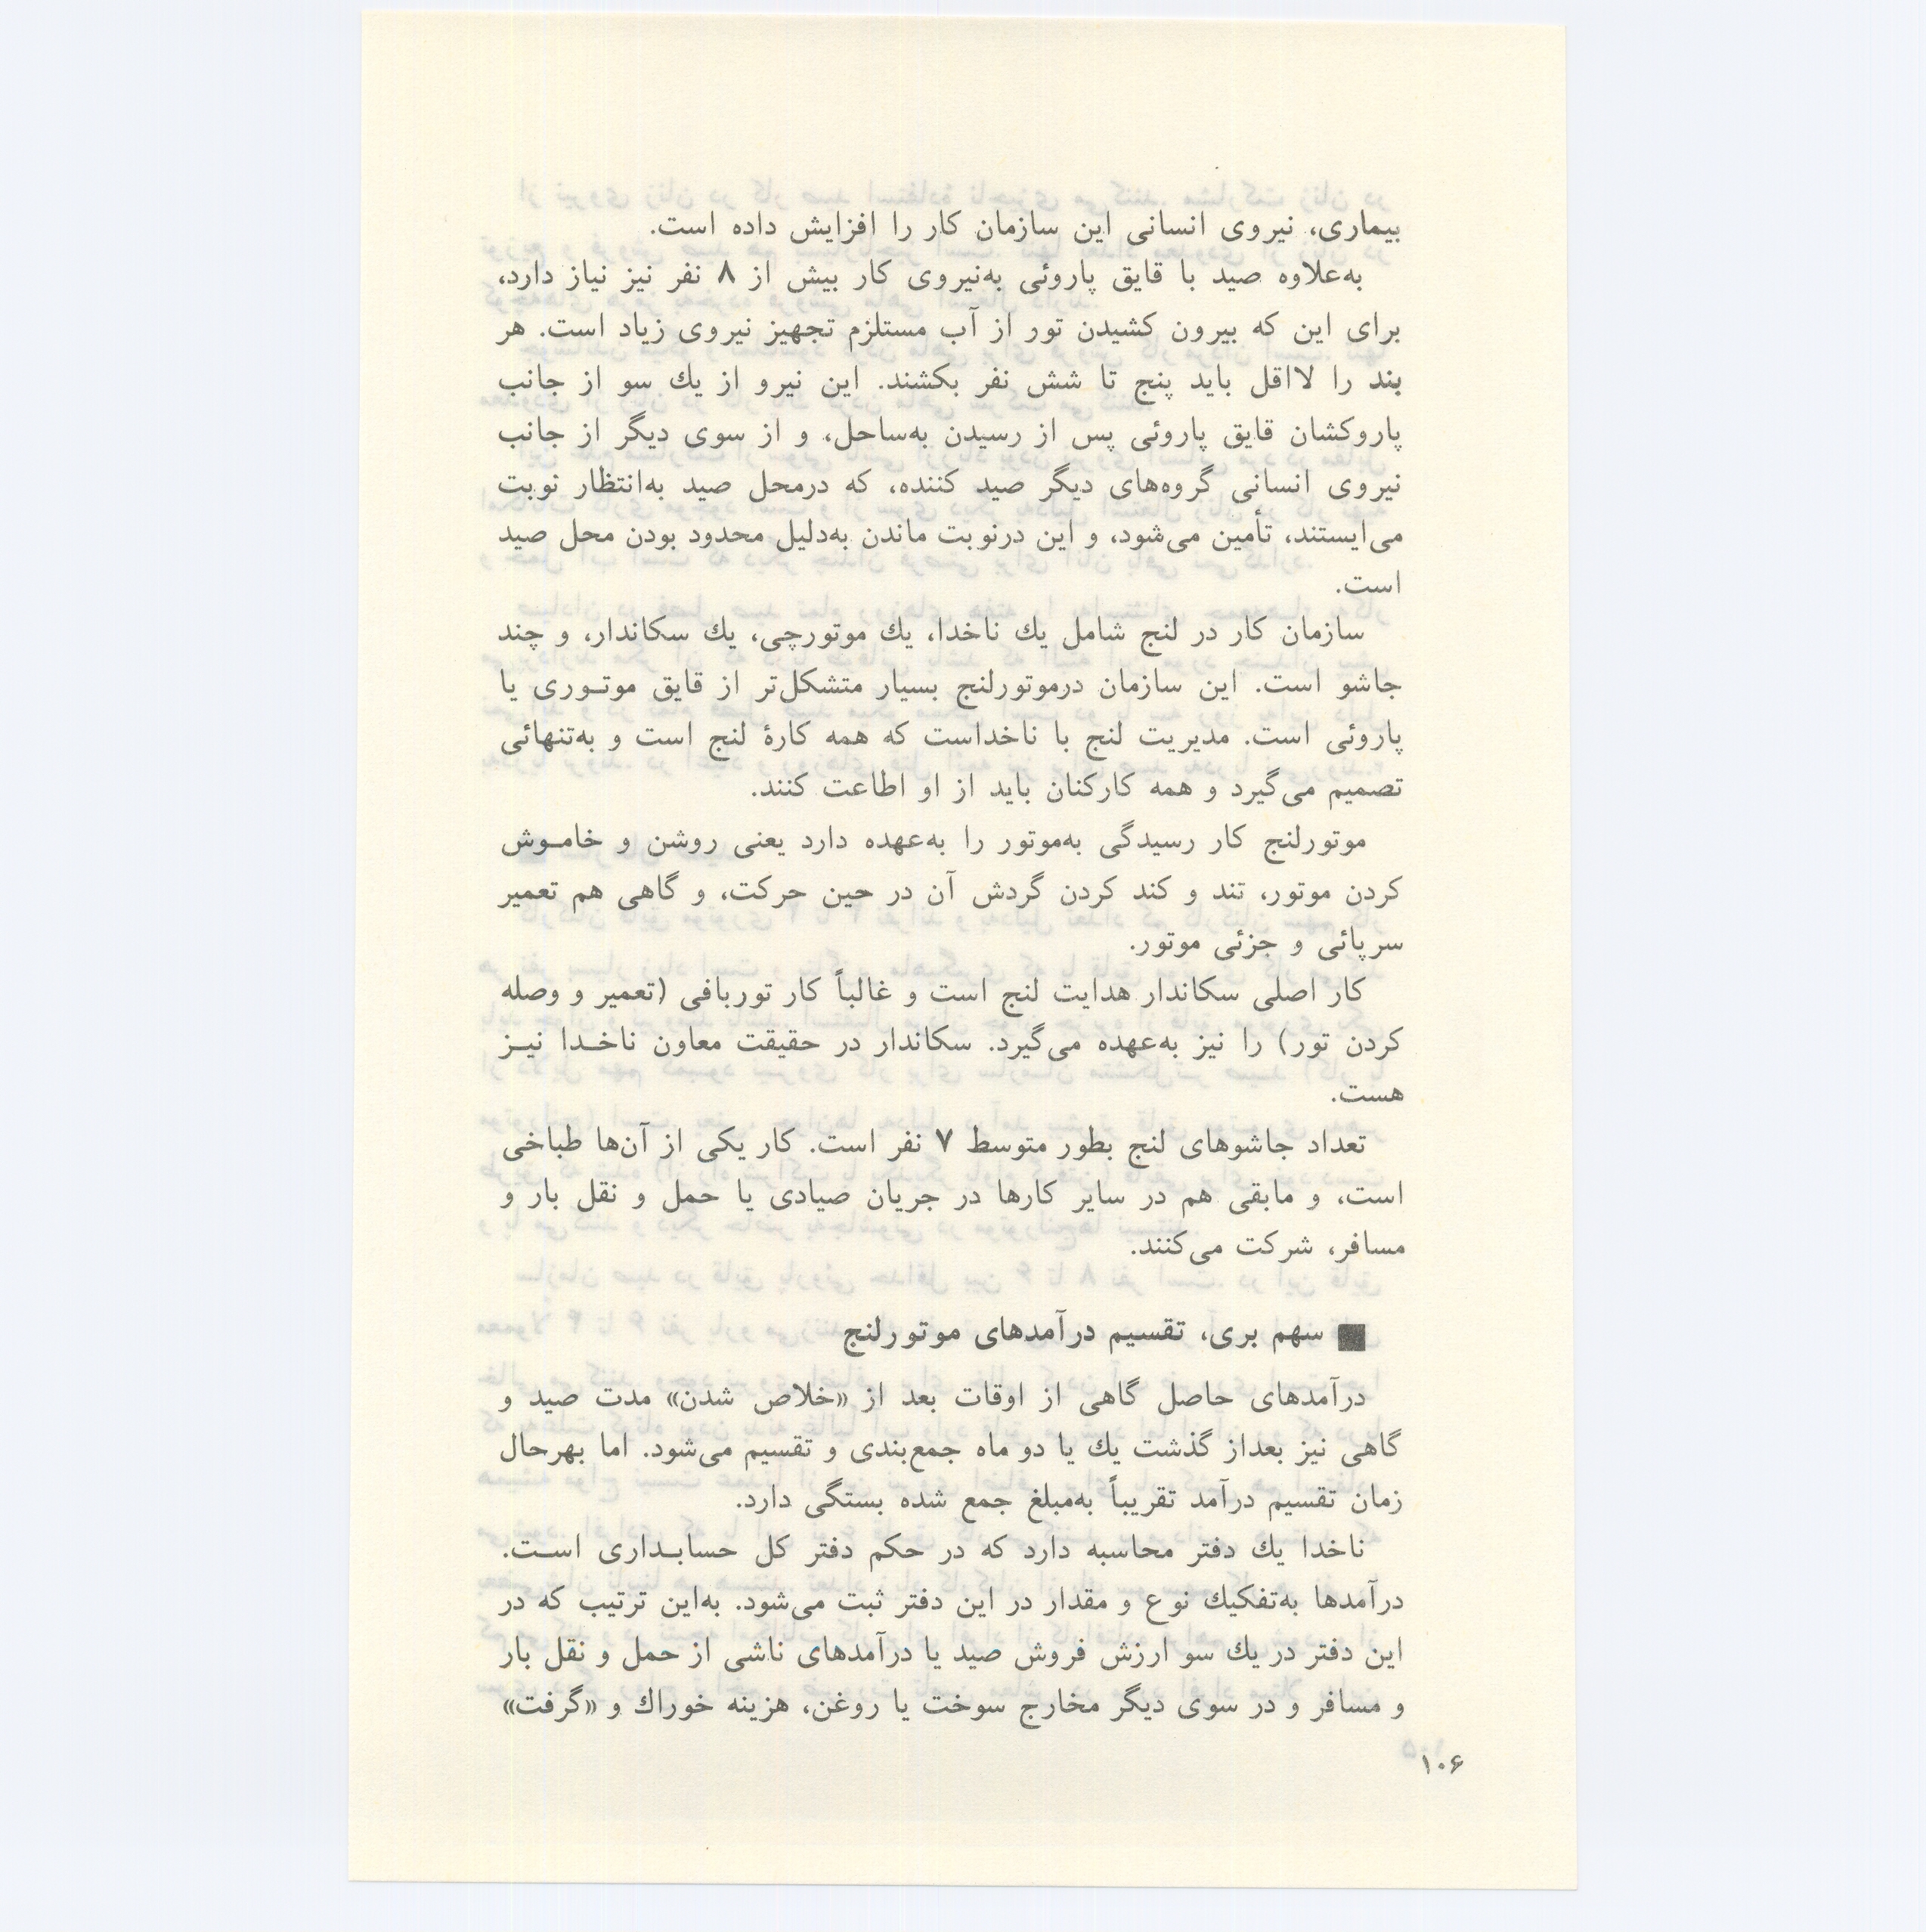 بیماری، نیروی انسانی این سازمان کار را افزایش داده است.
به‌علاوه صید با قایق پاروئی به‌نیروی کار بیش از ۸ نفر نیز نیاز دارد،
برای این که بیرون کشیدن تور از آب مستلزم تجهیز نیروی زیاد است. هر
بند را لااقل باید پنج تا شش نفر بکشند. این نیرو از یك سو از جانب
پاروکشان قایق پاروئی پس از رسیدن به‌ساحل، و از سوی دیگر از جانب
نیروی انسانی گروه‌های دیگر صید کننده، که درمحل صید به‌انتظار نوبت
می‌ایستند، تأمین می‌شود، و این درنوبت ماندن به‌دلیل محدود بودن محل صید
است.
سازمان کار در لنج شامل یك ناخدا، یك موتورچی، یك سکاندار، و چند
جاشو است. این سازمان درموتورلنج بسیار متشکل‌تر از قایق موتـوری یا
پاروئی است. مدیریت لنج با ناخداست که همه کارهٔ لنج است و به‌تنهائی
تصمیم می‌گیرد و همه کارکنان باید از او اطاعت کنند.
موتورلنج کار رسیدگی به‌موتور را به‌عهده دارد یعنی روشن و خامـوش
کردن موتور، تند و کند کردن گردش آن در حین حرکت، و گاهی هم تعمیر
سرپائی و جزئی موتور.
کار اصلی سکاندار هدایت لنج است و غالباً کار توربافی (تعمیر و وصله
کردن تور) را نیز به‌عهده می‌گیرد. سکاندار در حقیقت معاون ناخـدا نیـز
هست.
تعداد جاشوهای لنج بطور متوسط ۷ نفر است. کار یکی از آن‌ها طباخی
است، و مابقی هم در سایر کارها در جریان صیادی یا حمل و نقل بار و
مسافر، شرکت می‌کنند.
■ سهم بری، تقسیم درآمدهای موتورلنج
درآمدهای حاصل گاهی از اوقات بعد از «خلاص شدن» مدت صید و
گاهی نیز بعداز گذشت یك یا دو ماه جمع‌بندی و تقسیم می‌شود. اما بهرحال
زمان تقسیم درآمد تقریباً به‌مبلغ جمع شده بستگی دارد.
ناخدا یك دفتر محاسبه دارد که در حکم دفتر کل حسابـداری اسـت.
درآمدها به‌تفکیك نوع و مقدار در این دفتر ثبت می‌شود. به‌این ترتیب که در
این دفتر در یك سو ارزش فروش صید یا درآمدهای ناشی از حمل و نقل بار
و مسافر و در سوی دیگر مخارج سوخت یا روغن، هزینه خوراك و «گرفت»
۱۰۶